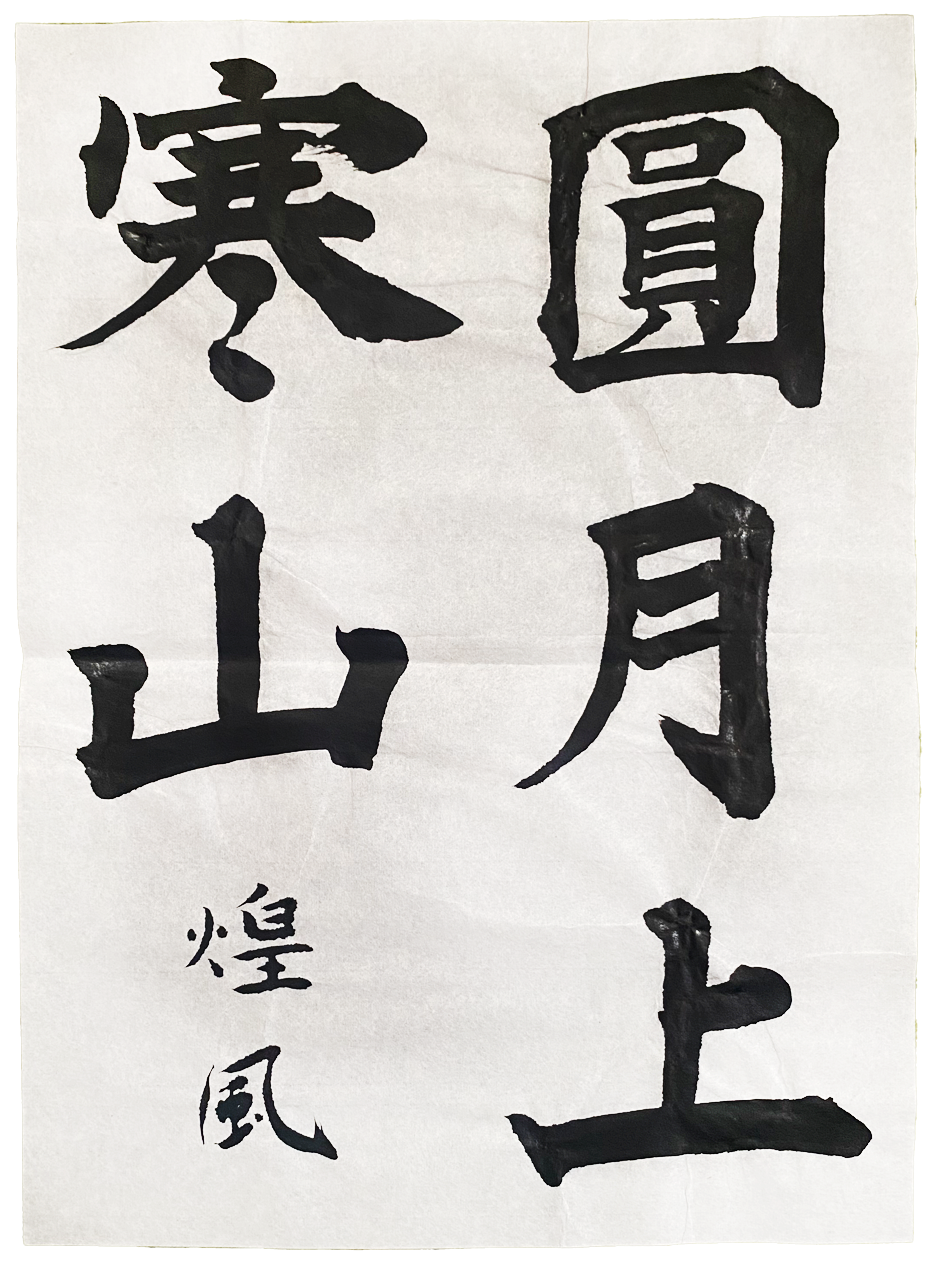 圓月上
寒山
煌風